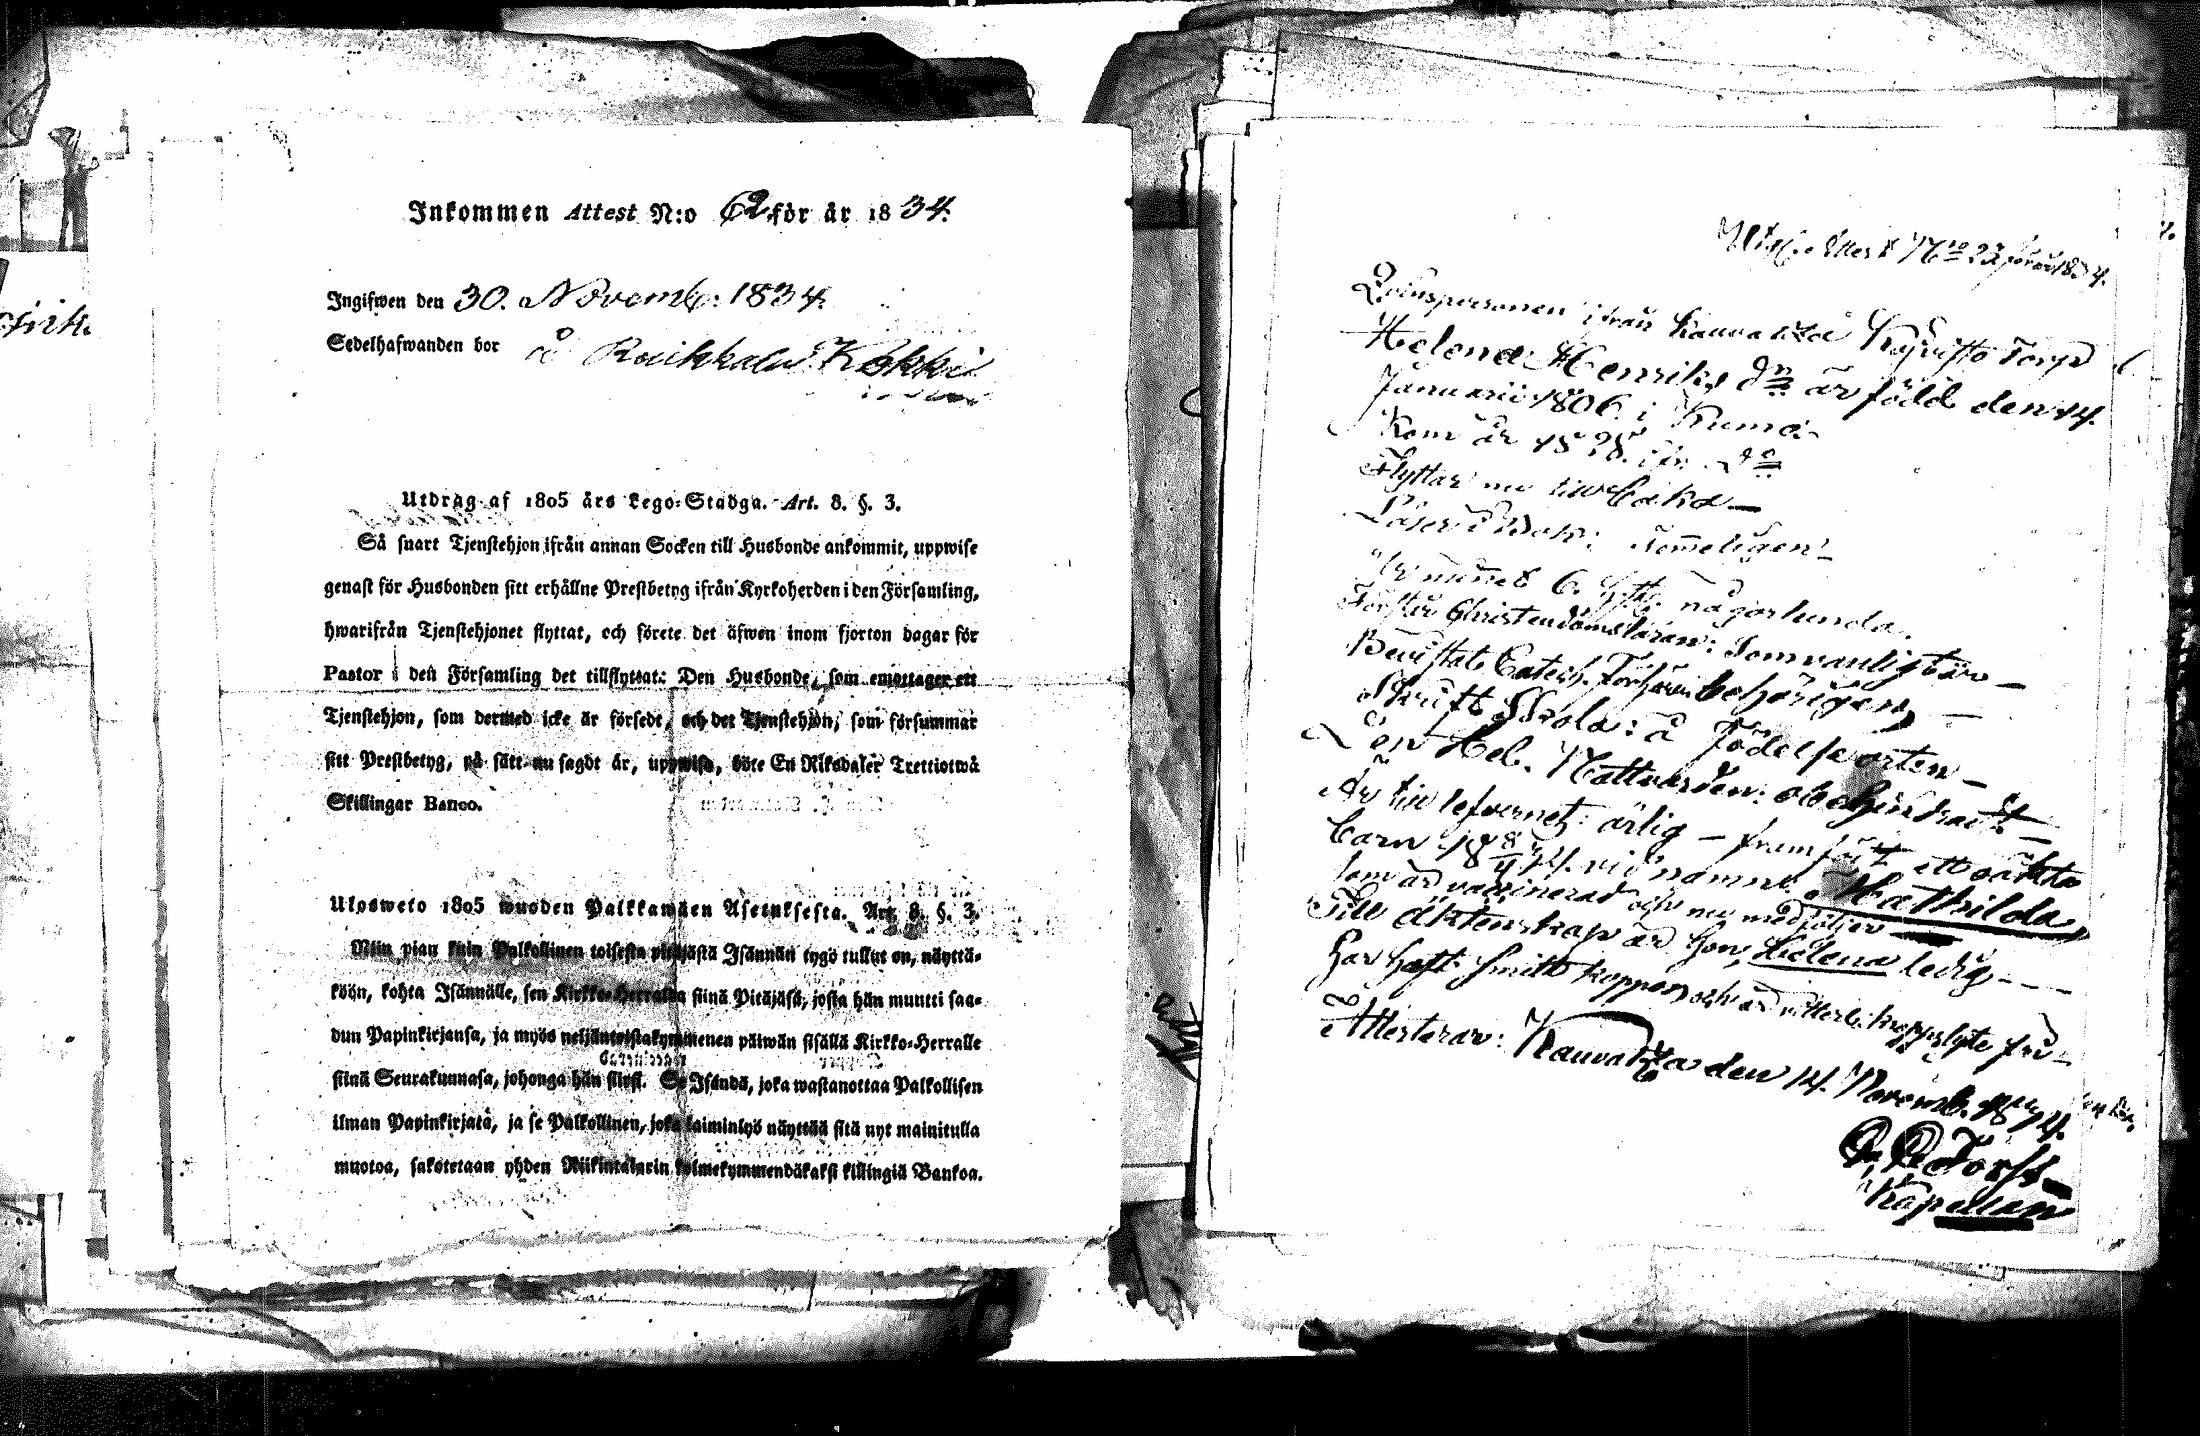 Inkommen Attest N:o 62 för år 1834.
Ingifwen den 30. Novemb: 1834.
Sedelhafwanden bor å Raikkala Kokki
Utdrag af 1805 års Lego-Stadga. Art. 8. §. 3.
Så snart Tjenstehjon ifrån annan Socken till Husbonde ankommit, uppwise
genast för Husbonden sitt erhållne Prestbetyg ifrån Kyrkoherden i den Församling,
hwarifrån Tjenstehjonet flyttat, och förete det äfwen inom fjorton dagar för
Pastor i den Församling det tillflyttat: Den Husbonde, som emottager ett
Tjenstehjon, som dermed icke är försedt, och det Tjenstehjon, som försummar
sitt Prestbetyg, på sätt nu sagdt är, uppwisa, böte En Riksdaler Trettiotwå
Skillingar Banco.
Ulosweto 1805 wuoden Palkkawäen Asetuksesta. Art. 8. §. 3.
Niin pian kuin Palkollinen toisesta pitäjästä Isännän tygö tullut on, näyttä-
köön, kohta Isännälle, sen Kirkko-Herralda siinä Pitäjäsä, josta hän muutti saa-
dun Papinkirjansa, ja myös neljäntoistakymmenen päiwän sisällä Kirkko-Herralle
siinä Seurakunnasa, johonga hän siirsi. Se Isändä, joka wastanottaa Palkollisen
ilman Papinkirjatä, ja se Palkollinen, joka laiminlyö näyttää sitä nyt mainitulla
muotoa, sakotetaan yhden Riikintalarin kolmekymmendäkaksi killingiä Bankoa.
Attest N:o 23 för år 1834.
ifrån Kauvatsa Kojvisto Torp
Helena Henriks dr är född den 14.
Januarii 1806 i Kumo.
Kom år 1828. ifr. do
Flyttar nu till Cakola
Läser i Bok: Temeligen
någorlunda.
Förstår Christendomsläran: Som vanligt är
Bevistat Catech. Förhören behörigen,
Skrift Skola: å Födelse orten
Den Hel. Nattvarden: obehindradt
Är till lefvernet: ärlig — framfödt ett oäkta
Barn vid namn Mathilda,
som är vaccinerad och nu medföljer
Till äktenskap är hon, Helena ledig
har haft Smitt koppor och är
Attesterar: Kauvatsa den 14. Novemb. 1834.
Torst
Kapellan